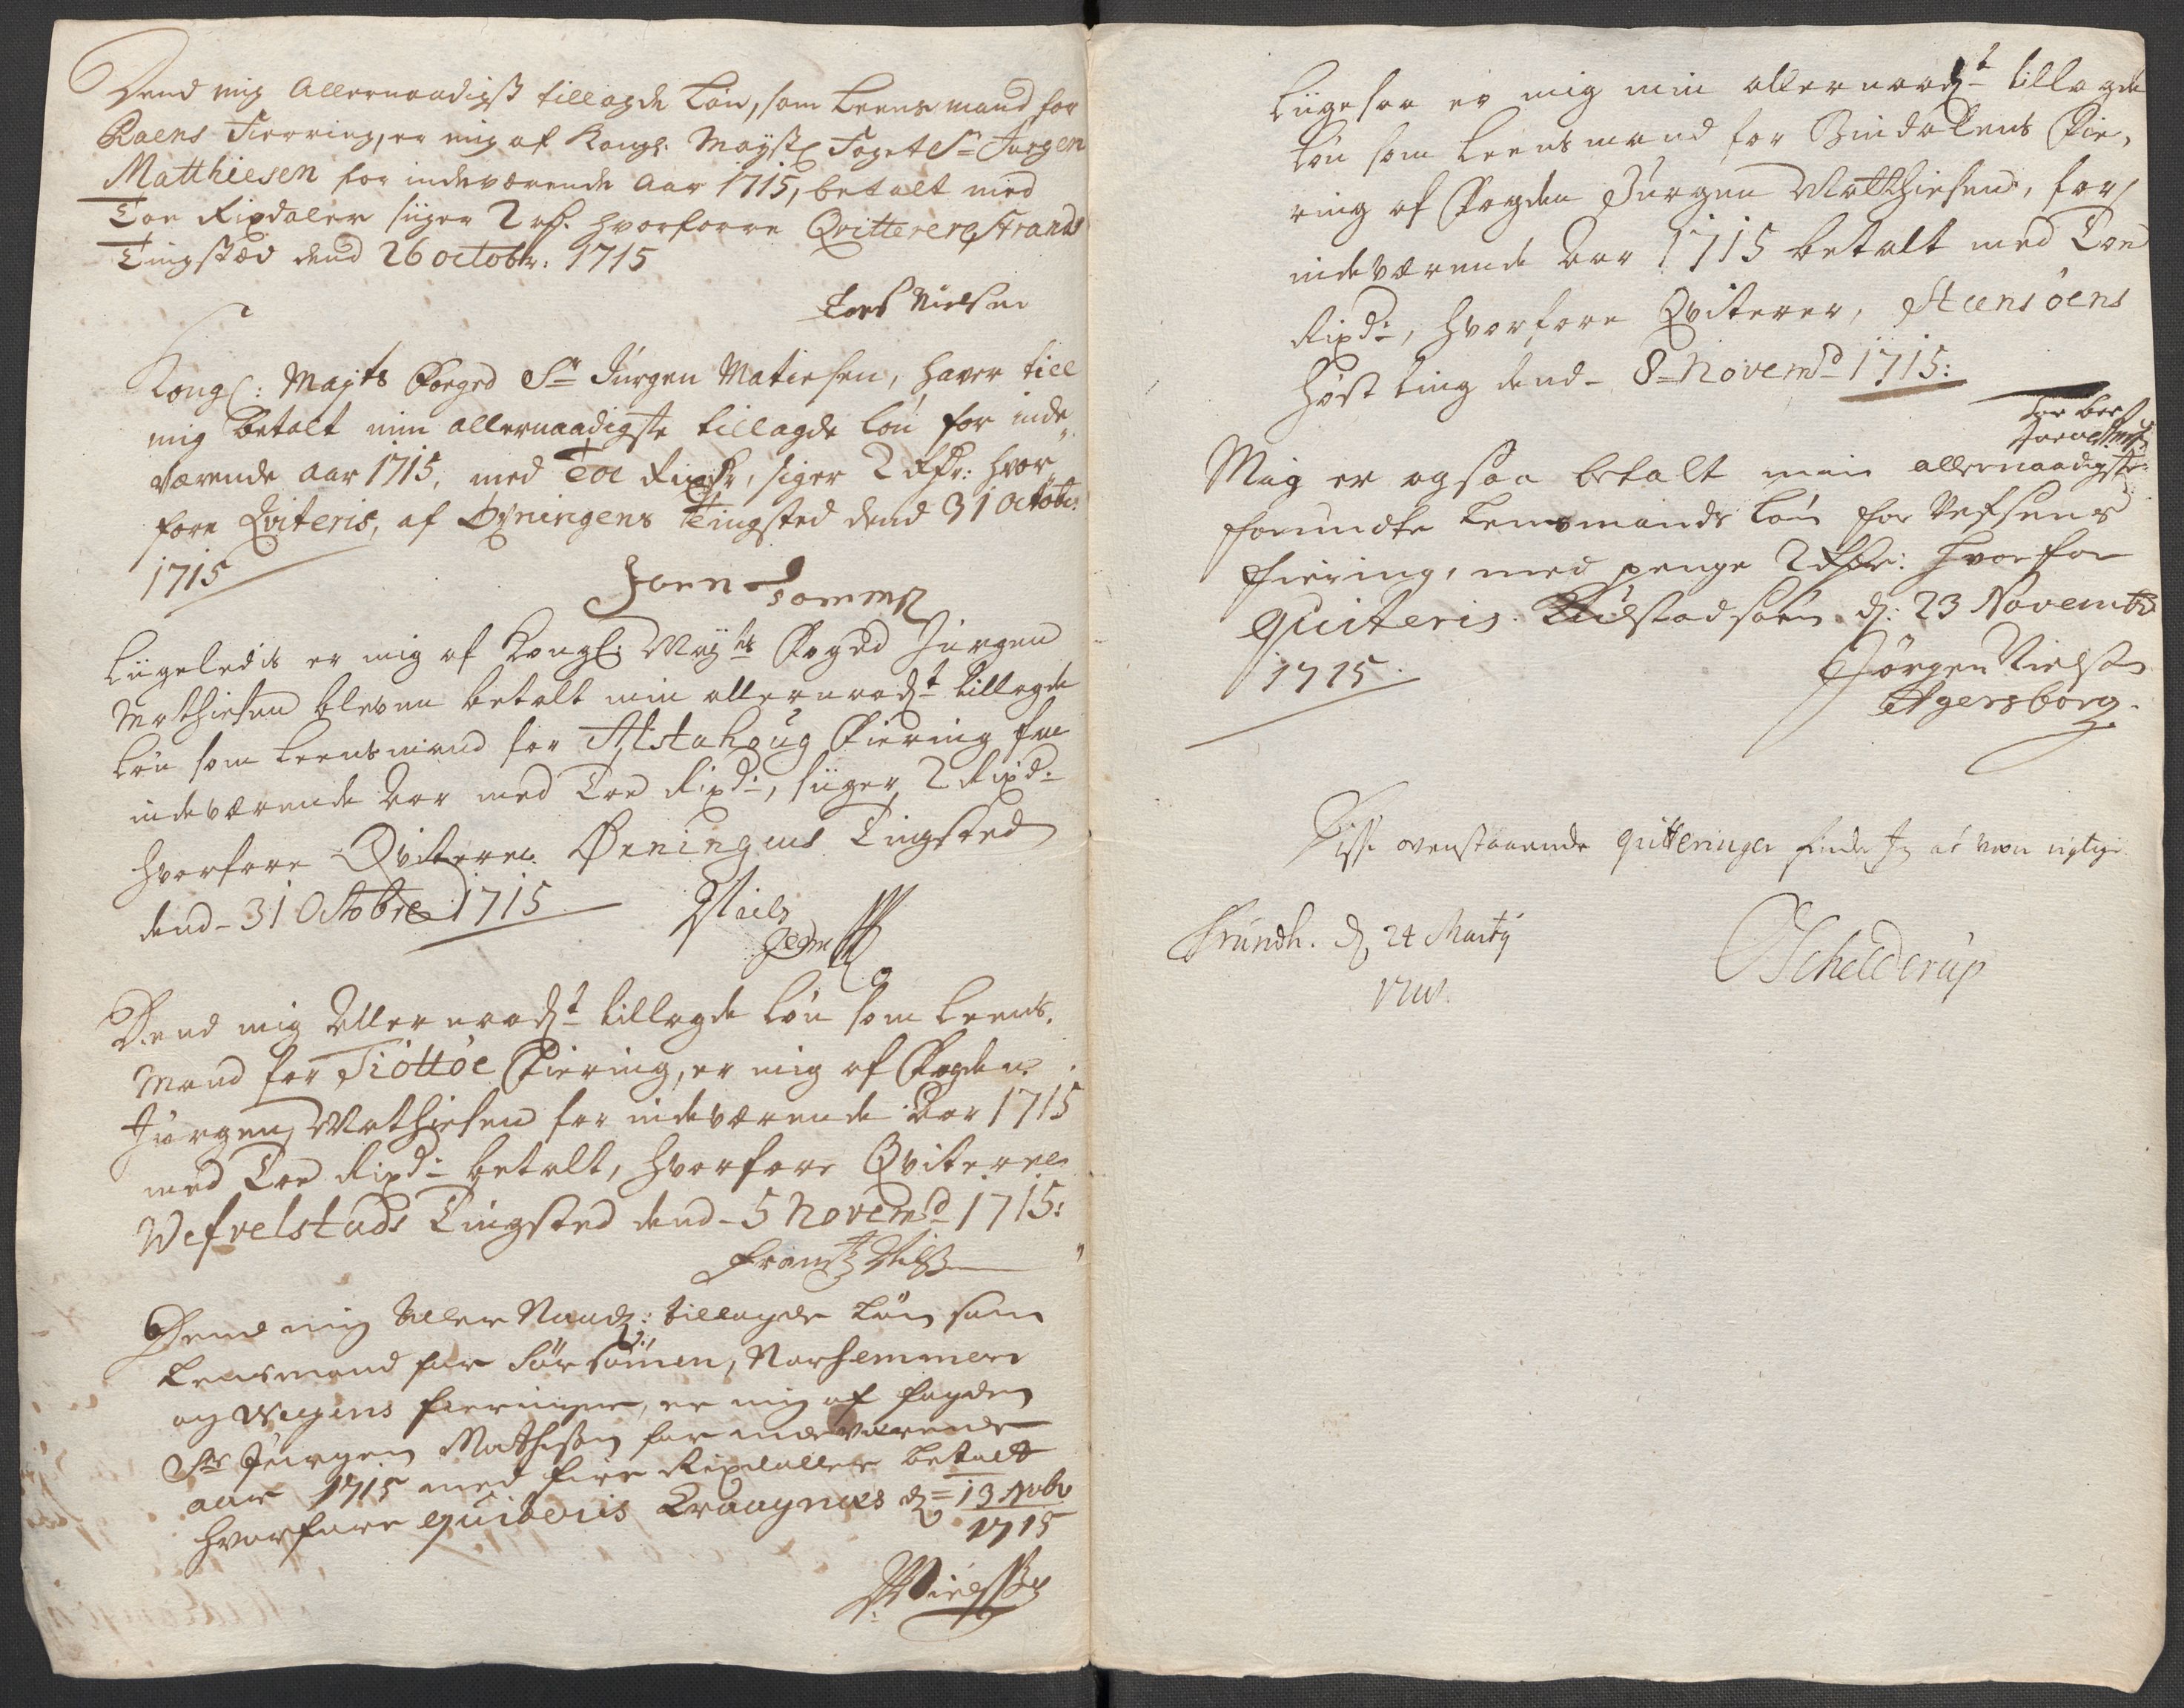 Dend mig Allernaadigst tillagde Løn, som Leensmand for
Raens Fierring, er mig af Kongl: Mayst: Foget Sr Jurgen
Matthiesen for indeværende Aar 1715, betalt med
Toe Rixdaler siiger 2 rd. hvorforre Qvitterer Strands
Tingstæd dend 26 octobr: 1715
Nielsen
Kongl: Mayts Foeged Sr Jürgen Matiesen, haver till
mig betalt min allernaadigste tillagde løn for inde„
værende aar 1715, med Toe Rixdr, siger 2 Rdr: hvor„
fore Qviteris, af Øyningens Tingsted dend 31 octobr:
1715
Joen Sommer
Liigeledis er mig af Kongl: Mayts Fogdd Jürgen
Mathiesen bleven betalt min allernaadst tillagde
Løn som Leensmand for Alstahoug Fiering for
indeværende Aar med Toe Rixdr, siiger, 2 Rixdr
hvorfore Qviterer Øeningens Tingsted
dend 31 Octobre 1715
Niels
Dend mig Allernaadst tillagde Løn som Leens,
mand for Tiøttøe Fiering, er mig af Fogden
Jürgen Mathiesen for indeværende Aar 1715
med Toe Rixdr betalt, hvorfore Qviterer
Vefvelstads Tingsted dend 5 Novembr 1715:
Frantz Nilsen
Dend mig Aller Naadst: tillagde Løn som
Lensmand for Sørsømen, Norsemmen
og Wegens fieringer, er mig af fogden
Sr Jürgen Mathisen for indeværende
aar 1715 med fire Rixdaller betalt
hvorfore quiteris Kraagnæs d= 13 Nobr
1715
Nielssen
Liigesaa er mig min allernaadst tillagde
Løn som Leensmand for Bindalens Fie,
ring af Fogden Jürgen Matthiesen, for
indeværende Aar 1715 betalt med Toe
Rixdr, hvorfore Qviterer, Steensøens
Høst ting dend 8 Novembr 1715:
Mig er ogsaa betalt min allernaadigste
forundte Lensmands Løn for Vefsens
fiering, med penge 2 Rdr: hvorfor
quiteris. d: 23 Novembr
1715
Jørgen Nielsen
Agersborg.
Disse ovenstaaende qvitteringer finder Jeg at være rigtige
Trundh. d. 24 Martij
1716.
Schelderup